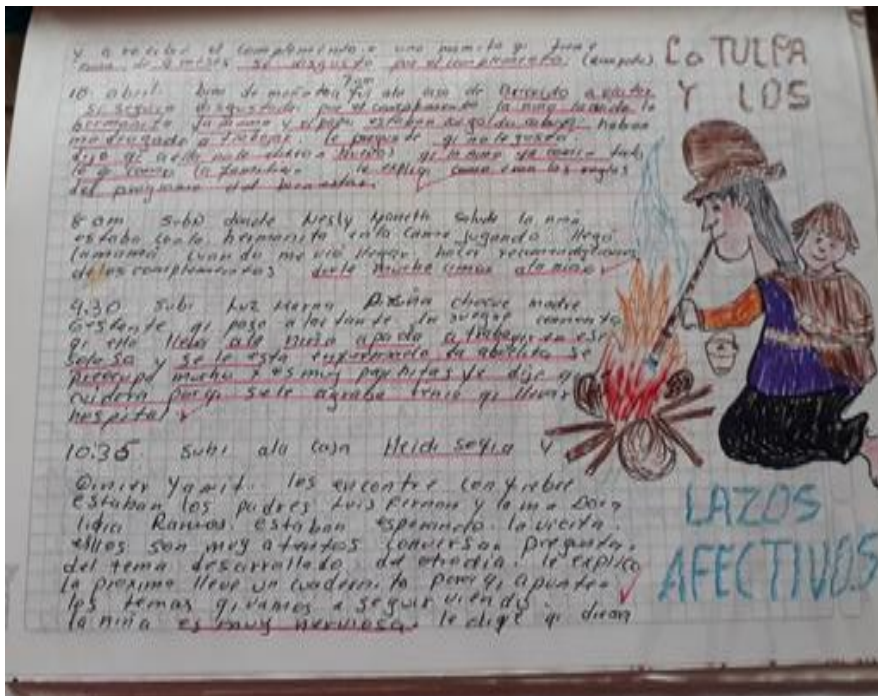 y a recibir el complemento. una mamita qi tiene
de 9 meses se disgusto por el complemento.
10 abril. 7 am fui ala casa de
si seguia disgustada por el complemento la niña la
hermanito la mama y el papa estaban habian
madrugado a trabajar. le pregunte qi no le gusta
dijo qi a ella no le qi la mama se comia todo
la familia. le expliqi como eran las reglas
del programa del bienestar.
8 am subi donde Nesly Yaneth salude la niña
estaba con la hermanita en la cama jugando llego
la mama cuando me vio llegar. hable recomendaciones
delos complementos darle mucho amor ala niña
9.30 subi Luz Merna chocue madre
Gestante qi paso a lactante la suegra comento
qi ella lleva ala niña a trabajar
sola y se le esta enfermando la abuelita se
preocupa mucho y es muy le dije qi
cuidera porqi si le agraba tenia qi llevar
hospital
10:35. subi ala casa Heidi y
Yamit. los encontre con fiebre
estaban los padres Luis Fernan y la ma
lidia Ramos. estaban esperando la vicita.
ellos son muy atentos conversan pregunta.
del tema desarrollado de otrodia. le explico
la proxima lleve un cuadernito parqi apunte
los temas qi vamos a seguir viendo.
la niña es muy nerviosa. le digé qi dieran
La TULPA
Y LOS
LAZOS
AFECTIVOS